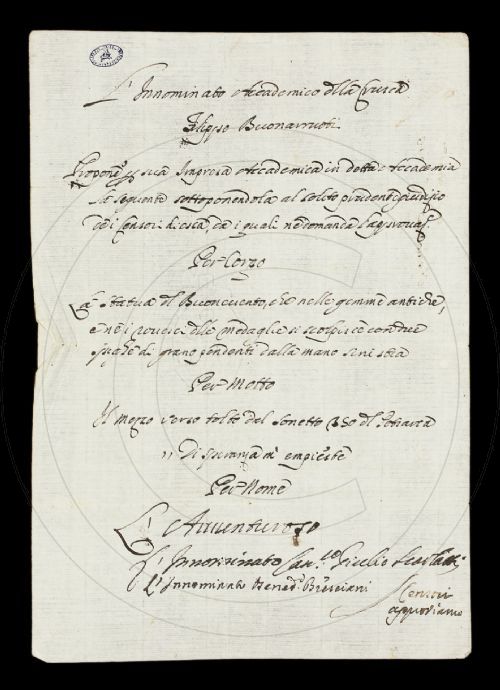 L'Innominato Accademico della Crusca
Filippo Buonarruoti
Propone p sua Impresa Accademica in detta Accademia
la seguente sottoponendola al solito prudente giudizio
de i Censori di essa, da i quali ne domanda l'approvaz.
Per Corpo
La Statua del Buonevento, che nelle gemme antiche,
e ne i rovesci delle medaglie si scolpisce con due
spighe di grano pendenti dalla mano sinistra
Per Motto
Il mezzo verso tolto del Sonetto 350 del Petrarca
" Di speranza m'empieste
Per Nome
L'Avventuroso
L'Innominato Can.co Giulio
L'Innominato Bened. Bresciani
Censori
approviamo